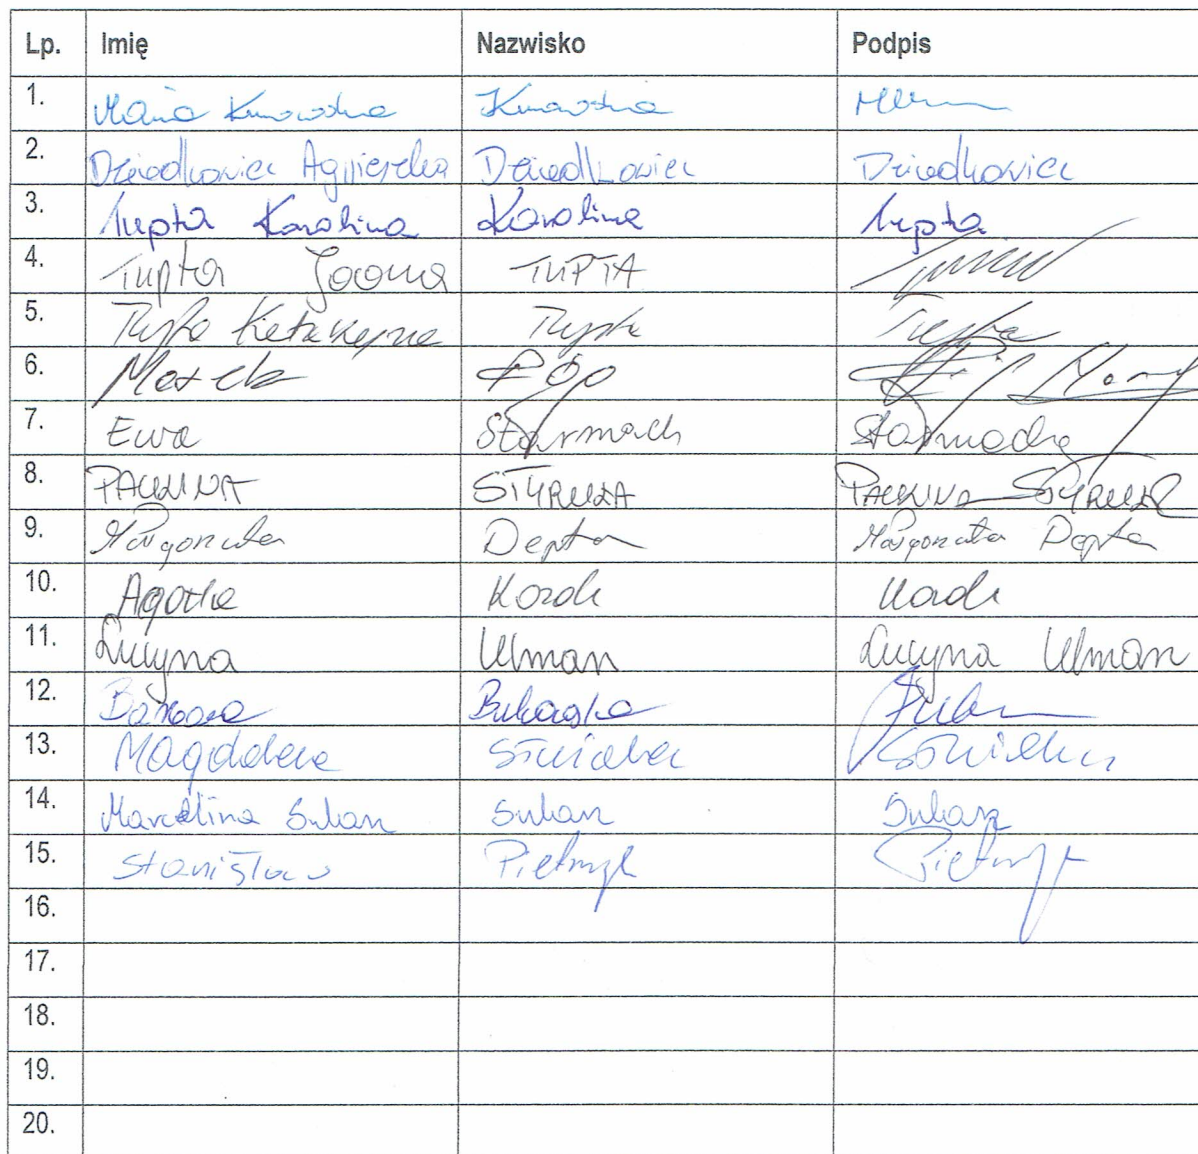 Lp. Imię Nazwisko Podpis
1. Maria Kunowska Kunowska
2. Dziedkowiec Agnieszka Dziedkowiec Dziedkowiec
3. Tupta Karolina Karolina Tupta
4. Tupta Joanna TUPTA
5. Tupta Katarzyna Tupta Tupta
6.
7. Ewa Starmach Starmach
8. PAULINA STYRULA PAULINA STYRULA
9. Małgorzata Depta Małgorzata Depta
10. Agata
11. Lucyna Ulman Lucyna Ulman
12. Barbara
13. Magdalena
14. Marcelina Sukan Sukan
15. Stanisław Pietrzyk Pietrzyk
16.
17.
18.
19.
20.